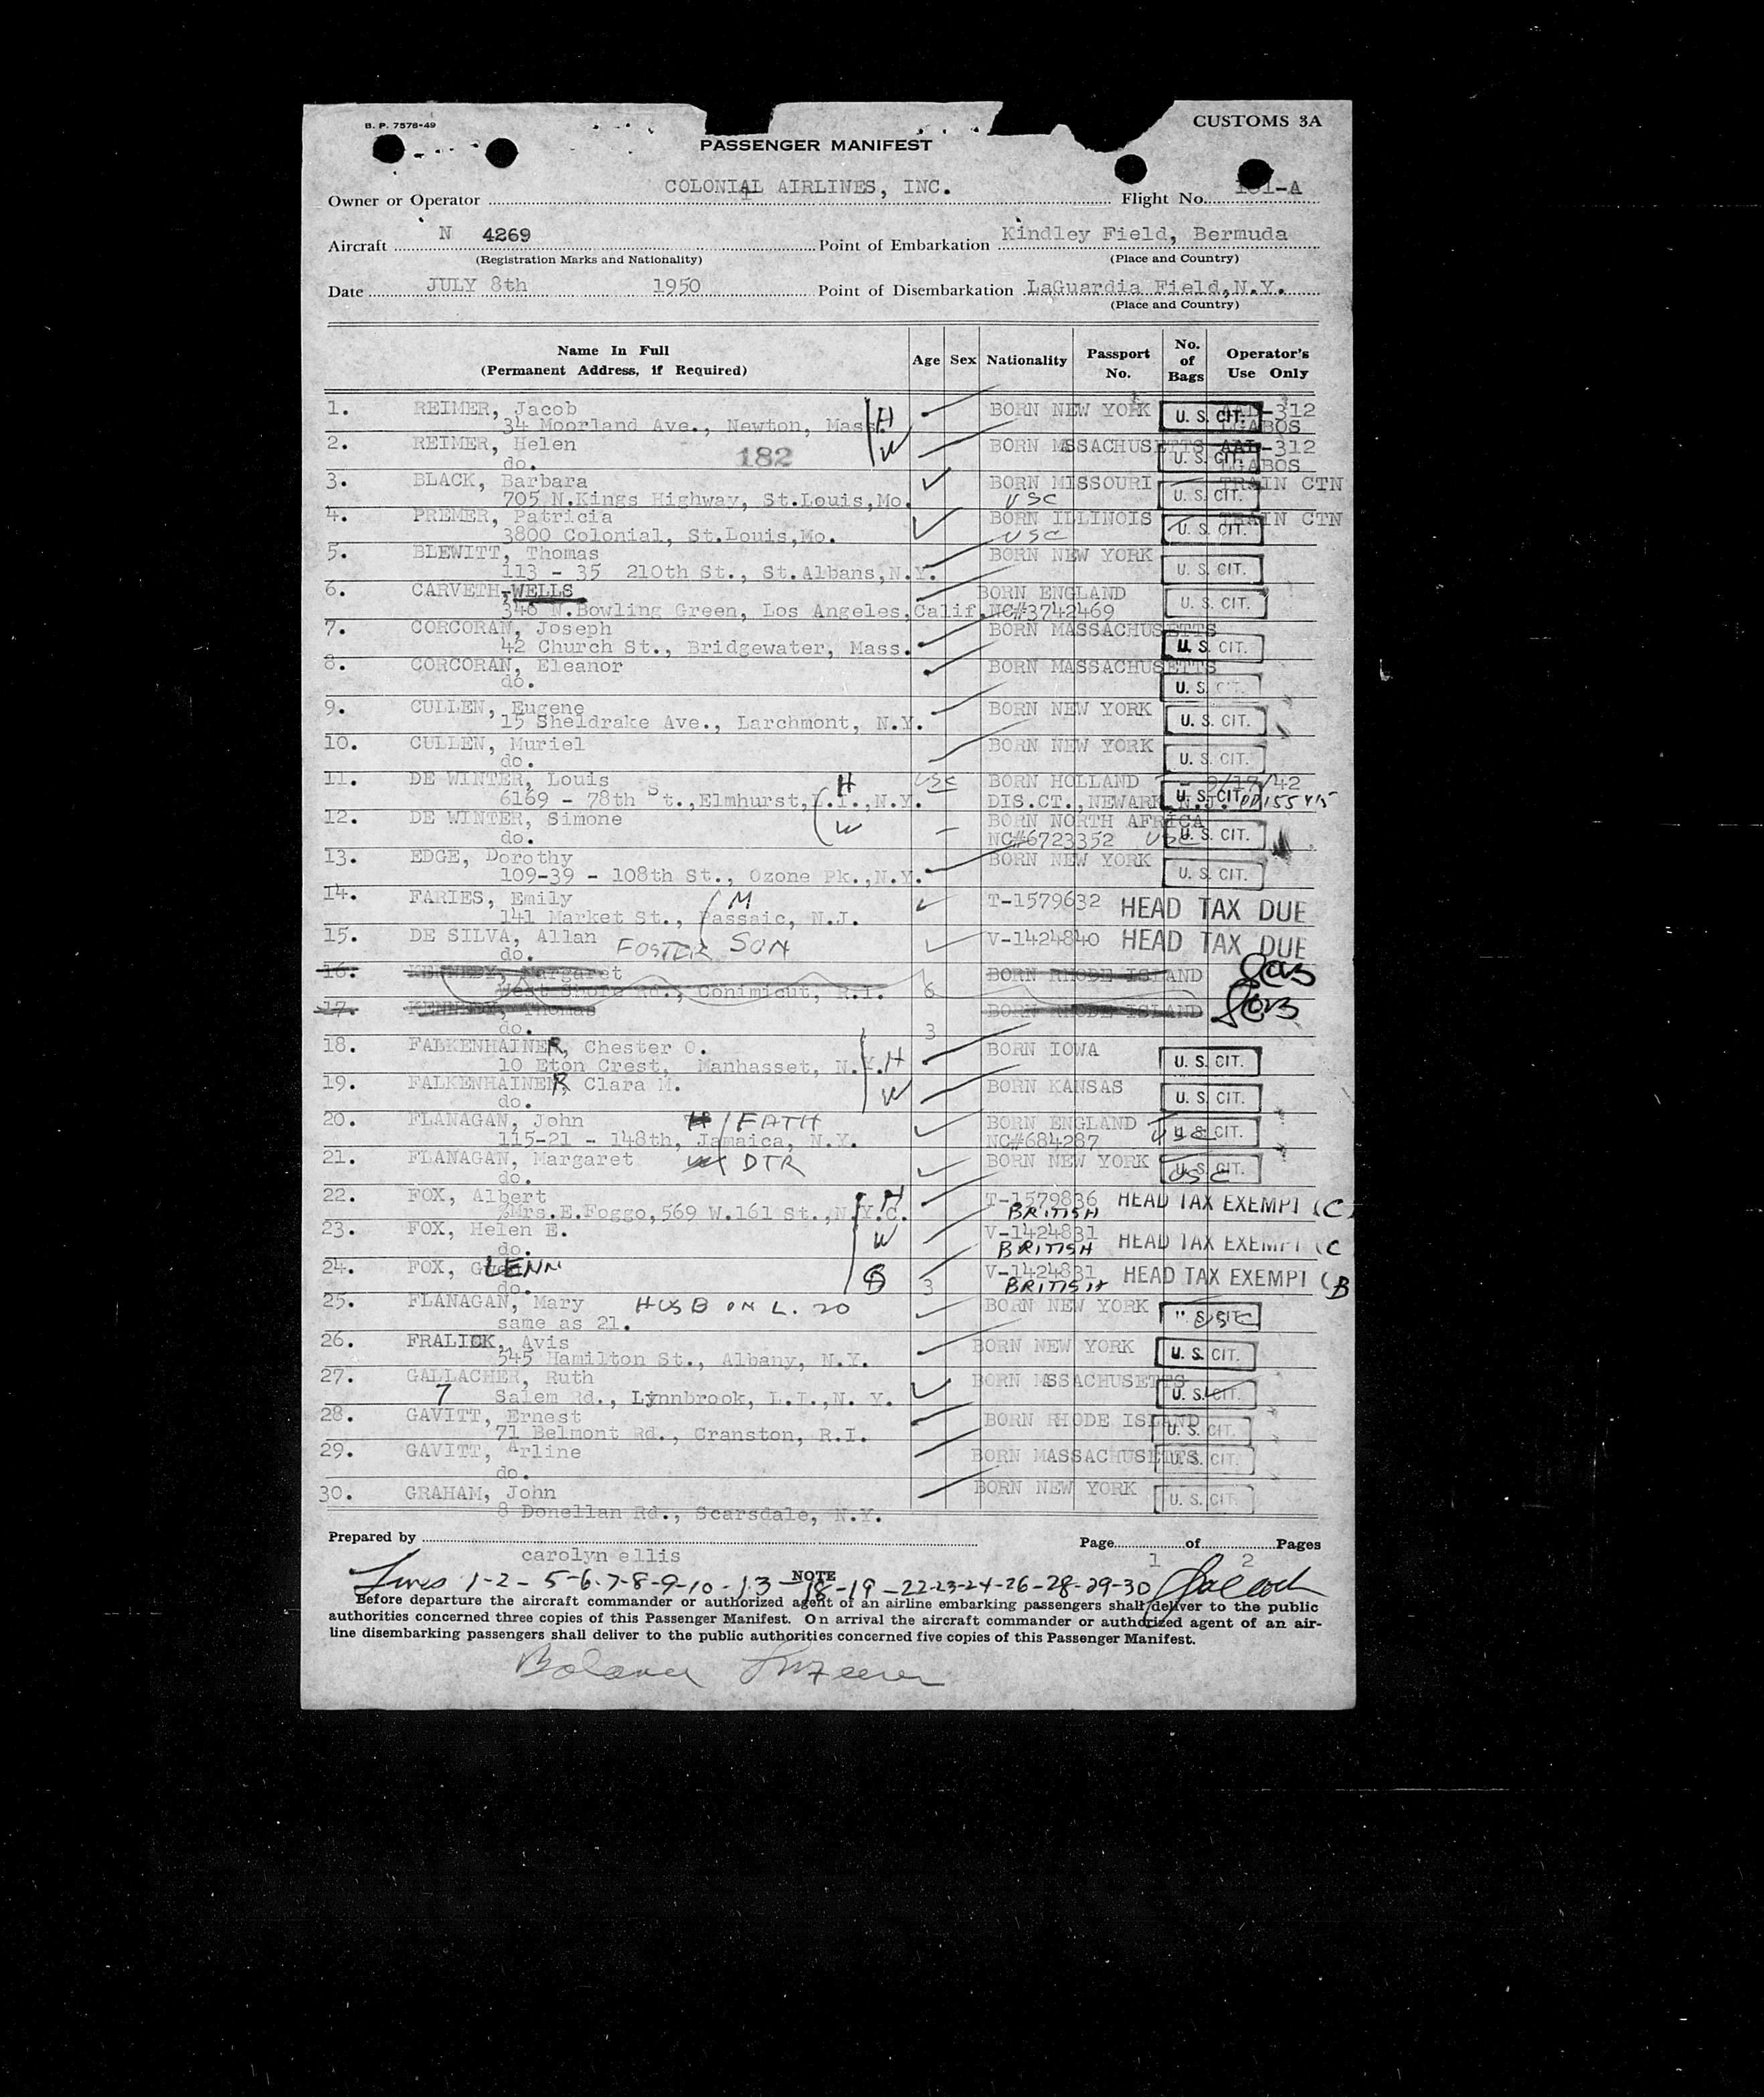 B. P. 7578-49
CUSTOMS 3A
PASSENGER MANIFEST
Owner or Operator COLONIAL AIRLINES, INC. Flight No. -A
Aircraft N 4269 Point of Embarkation Kindley Field, Bermuda
(Registration Marks and Nationality) (Place and Country)
Date JULY 8th 1950 Point of Disembarkation LaGuardia Field,N.Y.
(Place and Country)
Name In Full (Permanent Address, if Required) Age Sex Nationality Passport No. No. of Bags Operator's Use Only
1. REIMER, Jacob H BORN NEW YORK U. S. CIT. -312
34 Moorland Ave., Newton, Mass. LGABOS
2. REIMER, Helen W BORN MSSACHUSETTS U. S. CIT. AAL-312
do. 182 LGABOS
3. BLACK, Barbara BORN MISSOURI U. S. CIT. TRAIN CTN
705 N.Kings Highway, St.Louis,Mo. USC
4. PREMER, Patricia BORN ILLINOIS U. S. CIT. TRAIN CTN
3800 Colonial, St.Louis,Mo. USC
5. BLEWITT, Thomas BORN NEW YORK U. S. CIT.
113 - 35 210th St., St.Albans,N.Y.
6. CARVETH, WELLS BORN ENGLAND U. S. CIT.
346 N.Bowling Green, Los Angeles,Calif. NC#3742469
7. CORCORAN, Joseph BORN MASSACHUSETTS U. S. CIT.
42 Church St., Bridgewater, Mass.
8. CORCORAN, Eleanor BORN MASSACHUSETTS U. S. CIT.
do.
9. CULLEN, Eugene BORN NEW YORK U. S. CIT.
15 Sheldrake Ave., Larchmont, N.Y.
10. CULLEN, Muriel BORN NEW YORK U. S. CIT.
do.
11. DE WINTER, Louis H USC BORN HOLLAND /42
6169 - 78th St.,Elmhurst,L.I.,N.Y. DIS.CT., NEWARK, N.J. U. S. CIT.
12. DE WINTER, Simone W BORN NORTH AFRICA U. S. CIT.
do. NC#6723352 USC
13. EDGE, Dorothy BORN NEW YORK U. S. CIT.
109-39 - 108th St., Ozone Pk.,N.Y.
14. FARIES, Emily M T-1579632 HEAD TAX DUE
141 Market St., Passaic, N.J.
15. DE SILVA, Allan FOSTER SON V-1424840 HEAD TAX DUE
do.
16. KENNEDY, Margaret BORN RHODE ISLAND
West Shore Rd., Conimicut, R.I. 6
17. KENNEDY, Thomas BORN RHODE ISLAND
do. 3
18. FALKENHAINER, Chester O. H BORN IOWA U. S. CIT.
10 Eton Crest, Manhasset, N.Y.
19. FALKENHAINER, Clara M. W BORN KANSAS U. S. CIT.
do.
20. FLANAGAN, John H / FATH BORN ENGLAND U. S. CIT.
115-21 - 148th, Jamaica, N.Y. NC#684287 USC
21. FLANAGAN, Margaret DTR BORN NEW YORK U. S. CIT.
do. USC
22. FOX, Albert H T-1579836 HEAD TAX EXEMPT (C)
%Mrs.E.Foggo,569 W.161 St.,N.Y.C. BRITISH
23. FOX, Helen E. W V-1424831 HEAD TAX EXEMPT (C
do. BRITISH
24. FOX, GLENN 3 V-1424831 HEAD TAX EXEMPT (B
do. BRITISH
25. FLANAGAN, Mary HUSB ON L. 20 BORN NEW YORK USC
same as 21.
26. FRALICK, Avis BORN NEW YORK U. S. CIT.
545 Hamilton St., Albany, N.Y.
27. GALLACHER, Ruth BORN MSSACHUSETTS U. S. CIT.
7 Salem Rd., Lynnbrook, L.I.,N. Y.
28. GAVITT, Ernest BORN RHODE ISLAND U. S. CIT.
71 Belmont Rd., Cranston, R.I.
29. GAVITT, Arline BORN MASSACHUSETTS U. S. CIT.
do.
30. GRAHAM, John BORN NEW YORK U. S. CIT.
8 Donellan Rd., Scarsdale, N.Y.
Prepared by carolyn ellis Page 1 of 2 Pages
NOTE
Lines 1-2-5-6-7-8-9-10-13-18-19-22-23-24-26-28-29-30
Before departure the aircraft commander or authorized agent of an airline embarking passengers shall deliver to the public
authorities concerned three copies of this Passenger Manifest. On arrival the aircraft commander or authorized agent of an air-
line disembarking passengers shall deliver to the public authorities concerned five copies of this Passenger Manifest.